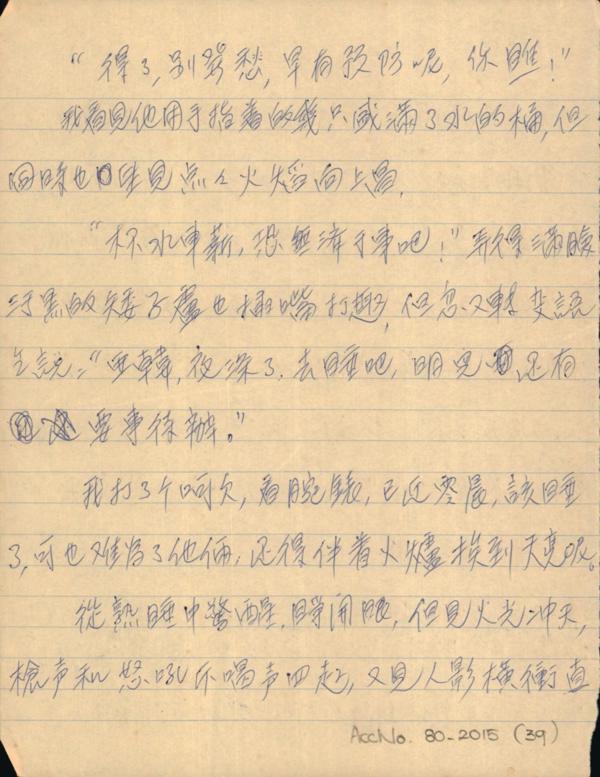 “得了,别發愁,早有预防呢,你瞧!”
我看見他用手指着的幾只盛滿了水的桶,但
同時也見点々火熖向上冒,
“杯水車薪,恐無済于事吧!”弄得滿臉
污黑的矮子盧也插嘴打趣,但忽又轉变語
气説:“亜韓,夜深了,去睡吧,明兒还有
要事待辦。”
我打了个呵欠,看腕錶,已近零晨,該睡
了,可也难为了他倆,还得伴着火爐挨到天亮呢。
從熟睡中驚醒,睜開眼,但見火光冲天,
槍声和怒吼吆喝声四起,又見人影橫衝直
AccNo. 80-2015 (39)